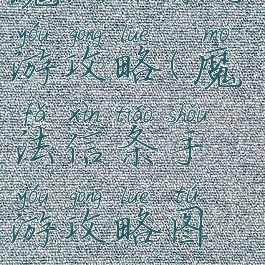 yóu gōng lüè mó
游攻略(魔
fǎ xìn tiáo shǒu
法信条手
yóu gōng lüè tú
游攻略图